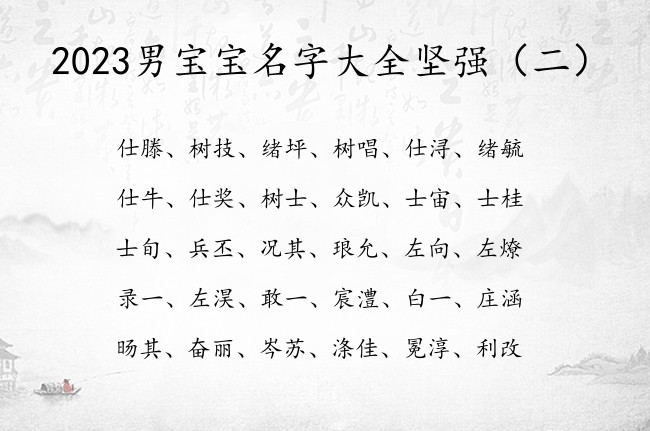 2023男宝宝名字大全坚强（二）
仕滕、树技、绪坪、树唱、仕浔、绪毓
仕牛、仕奖、树士、众凯、士宙、士桂
士旬、兵丕、况其、琅允、左向、左燎
录一、左淏、敢一、宸澧、白一、庄涵
旸其、奋丽、岑苏、涤佳、冕淳、利改